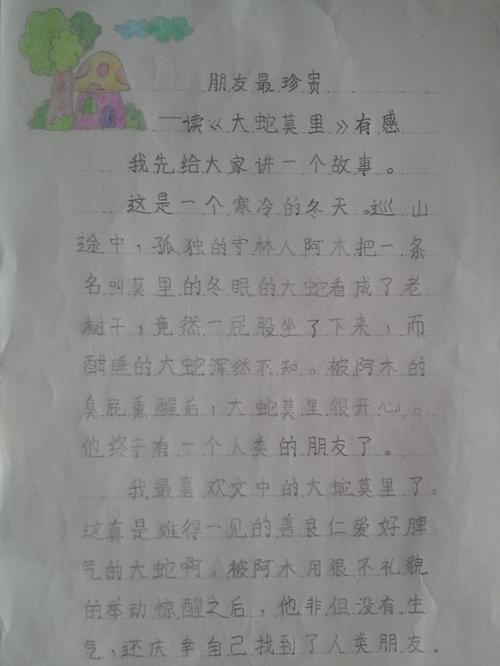 朋友最珍贵
——读《大蛇莫里》有感
我先给大家讲一个故事。
这是一个寒冷的冬天。巡山
途中，孤独的守林人阿木把一条
名叫莫里的冬眠的大蛇看成了老
树干，竟然一屁股坐了下来，而
酣睡的大蛇浑然不知。被阿木的
臭屁熏醒后，大蛇莫里很开心。
他终于有一个人类的朋友了。
我最喜欢文中的大蛇莫里了。
这真是难得一见的善良仁爱好脾
气的大蛇啊。被阿木用很不礼貌
的举动惊醒之后，他非但没有生
气，还庆幸自己找到了人类朋友。